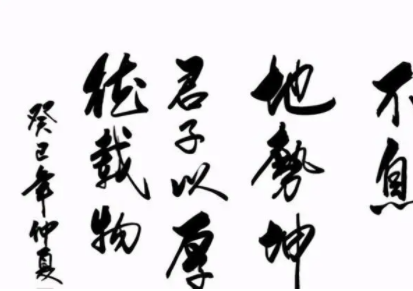 不息
地勢坤
君子以厚
德載物
癸巳年仲夏